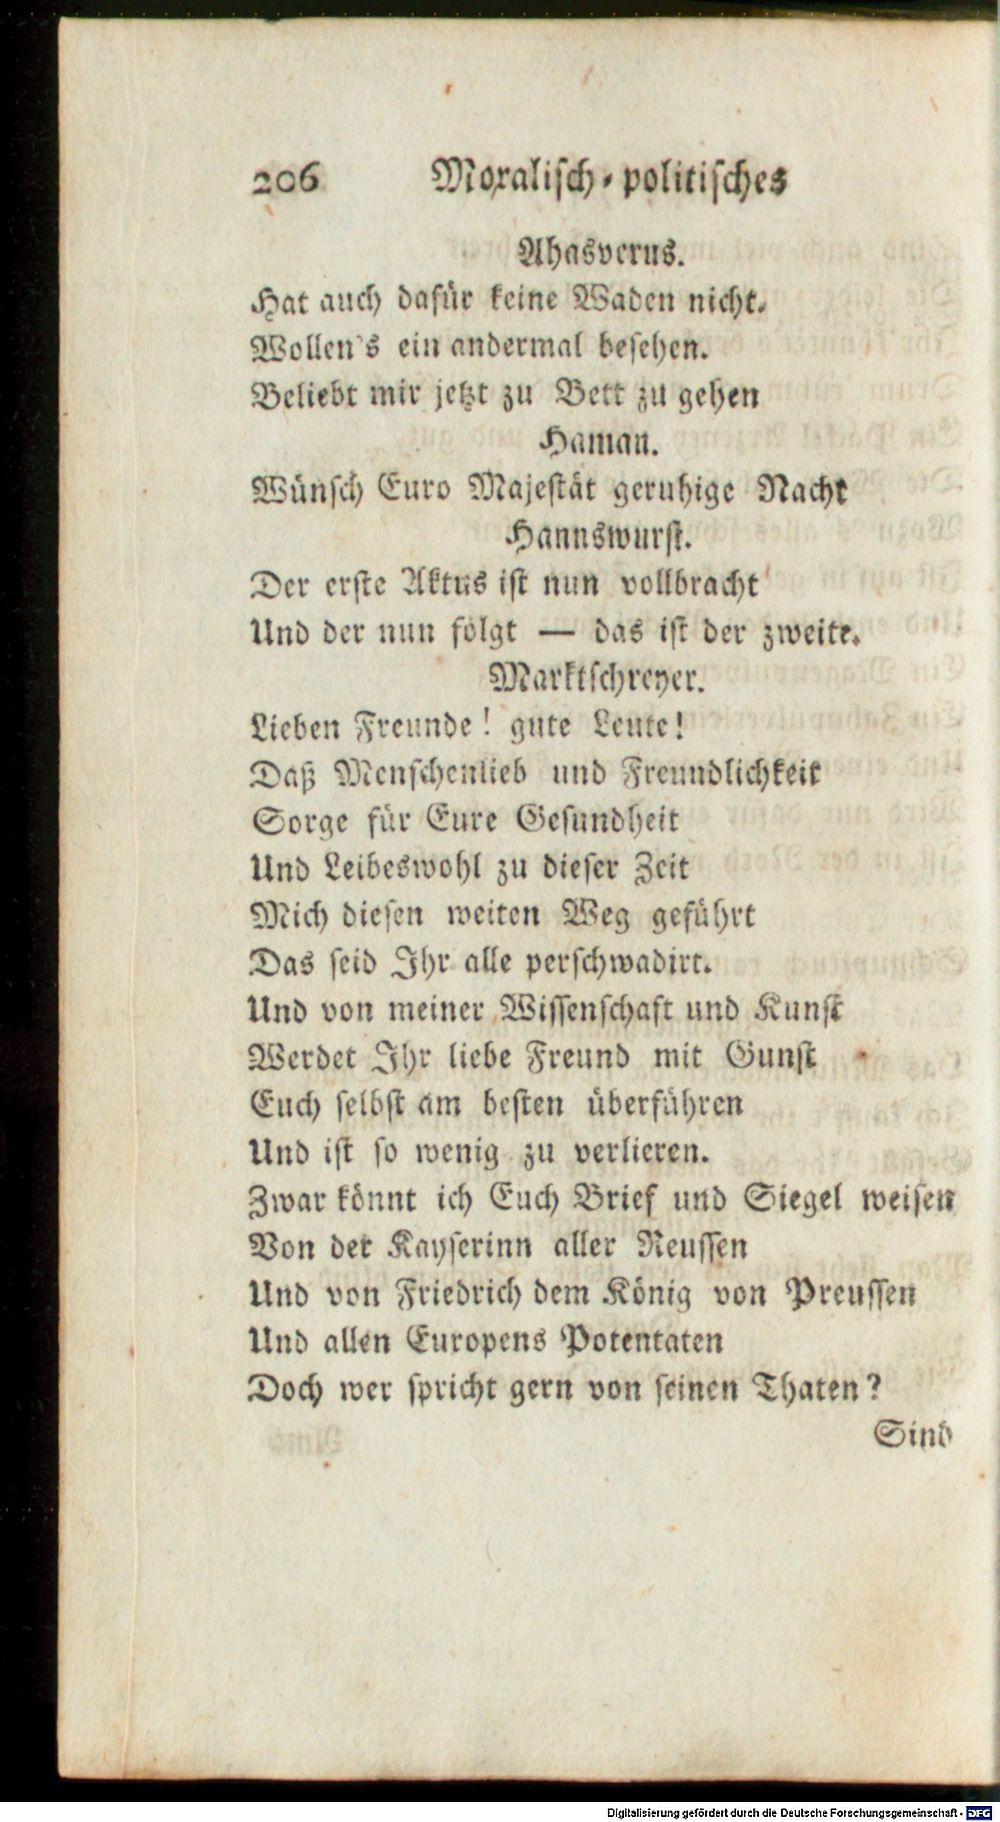 206 Moralisch-politisches
Ahasverus.
Hat auch dafür keine Waden nicht.
Wollen's ein andermal besehen.
Beliebt mir jetzt zu Bett zu gehen
Haman.
Wünsch Euro Majestät geruhige Nacht
Hannswurst.
Der erste Aktus ist nun vollbracht
Und der nun folgt — das ist der zweite.
Marktschreyer.
Lieben Freunde! gute Leute!
Daß Menschenlieb und Freundlichkeit
Sorge für Eure Gesundheit
Und Leibeswohl zu dieser Zeit
Mich diesen weiten Weg geführt
Das seid Ihr alle perschwadirt.
Und von meiner Wissenschaft und Kunst
Werdet Ihr liebe Freund mit Gunst
Euch selbst am besten überführen
Und ist so wenig zu verlieren.
Zwar könnt ich Euch Brief und Siegel weisen
Von der Kayserinn aller Reussen
Und von Friedrich dem König von Preussen
Und allen Europens Potentaten
Doch wer spricht gern von seinen Thaten?
Sind
Digitalisierung gefördert durch die Deutsche Forschungsgemeinschaft - DFG